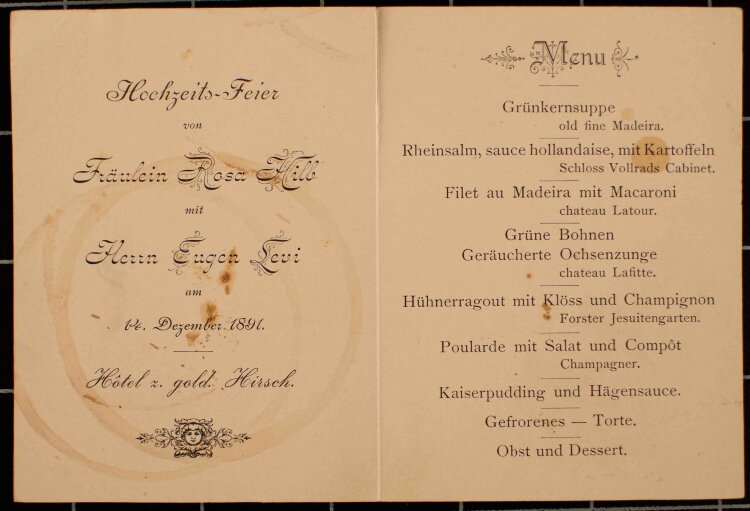 Hochzeits-Feier
von
Fräulein Rosa Hilb
mit
Herrn Eugen Levi
am
14. Dezember 1891.
Hôtel z. gold. Hirsch.
Menu
Grünkernsuppe
old fine Madeira.
Rheinsalm, sauce hollandaise, mit Kartoffeln
Schloss Vollrads Cabinet.
Filet au Madeira mit Macaroni
chateau Latour.
Grüne Bohnen
Geräucherte Ochsenzunge
chateau Lafitte.
Hühnerragout mit Klöss und Champignon
Forster Jesuitengarten.
Poularde mit Salat und Compôt
Champagner.
Kaiserpudding und Hägensauce.
Gefrorenes — Torte.
Obst und Dessert.